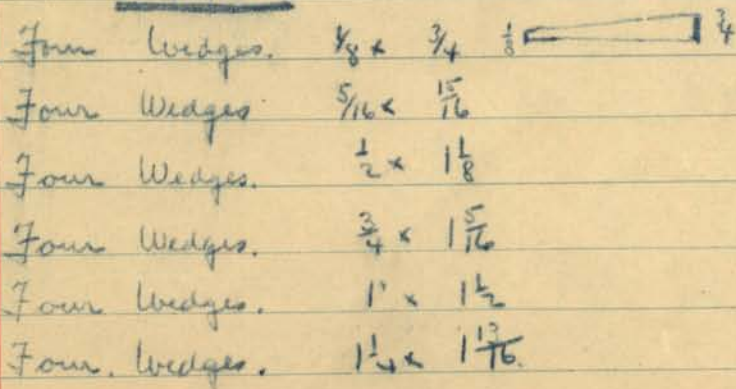 Four Wedges. 1/8 x 3/4 1/8 3/4
Four Wedges 5/16 x 15/16
Four Wedges. 1/2 x 1 1/8
Four Wedges. 3/4 x 1 5/16
Four Wedges. 1" x 1 1/2
Four. Wedges. 1 1/4 x 1 13/16.